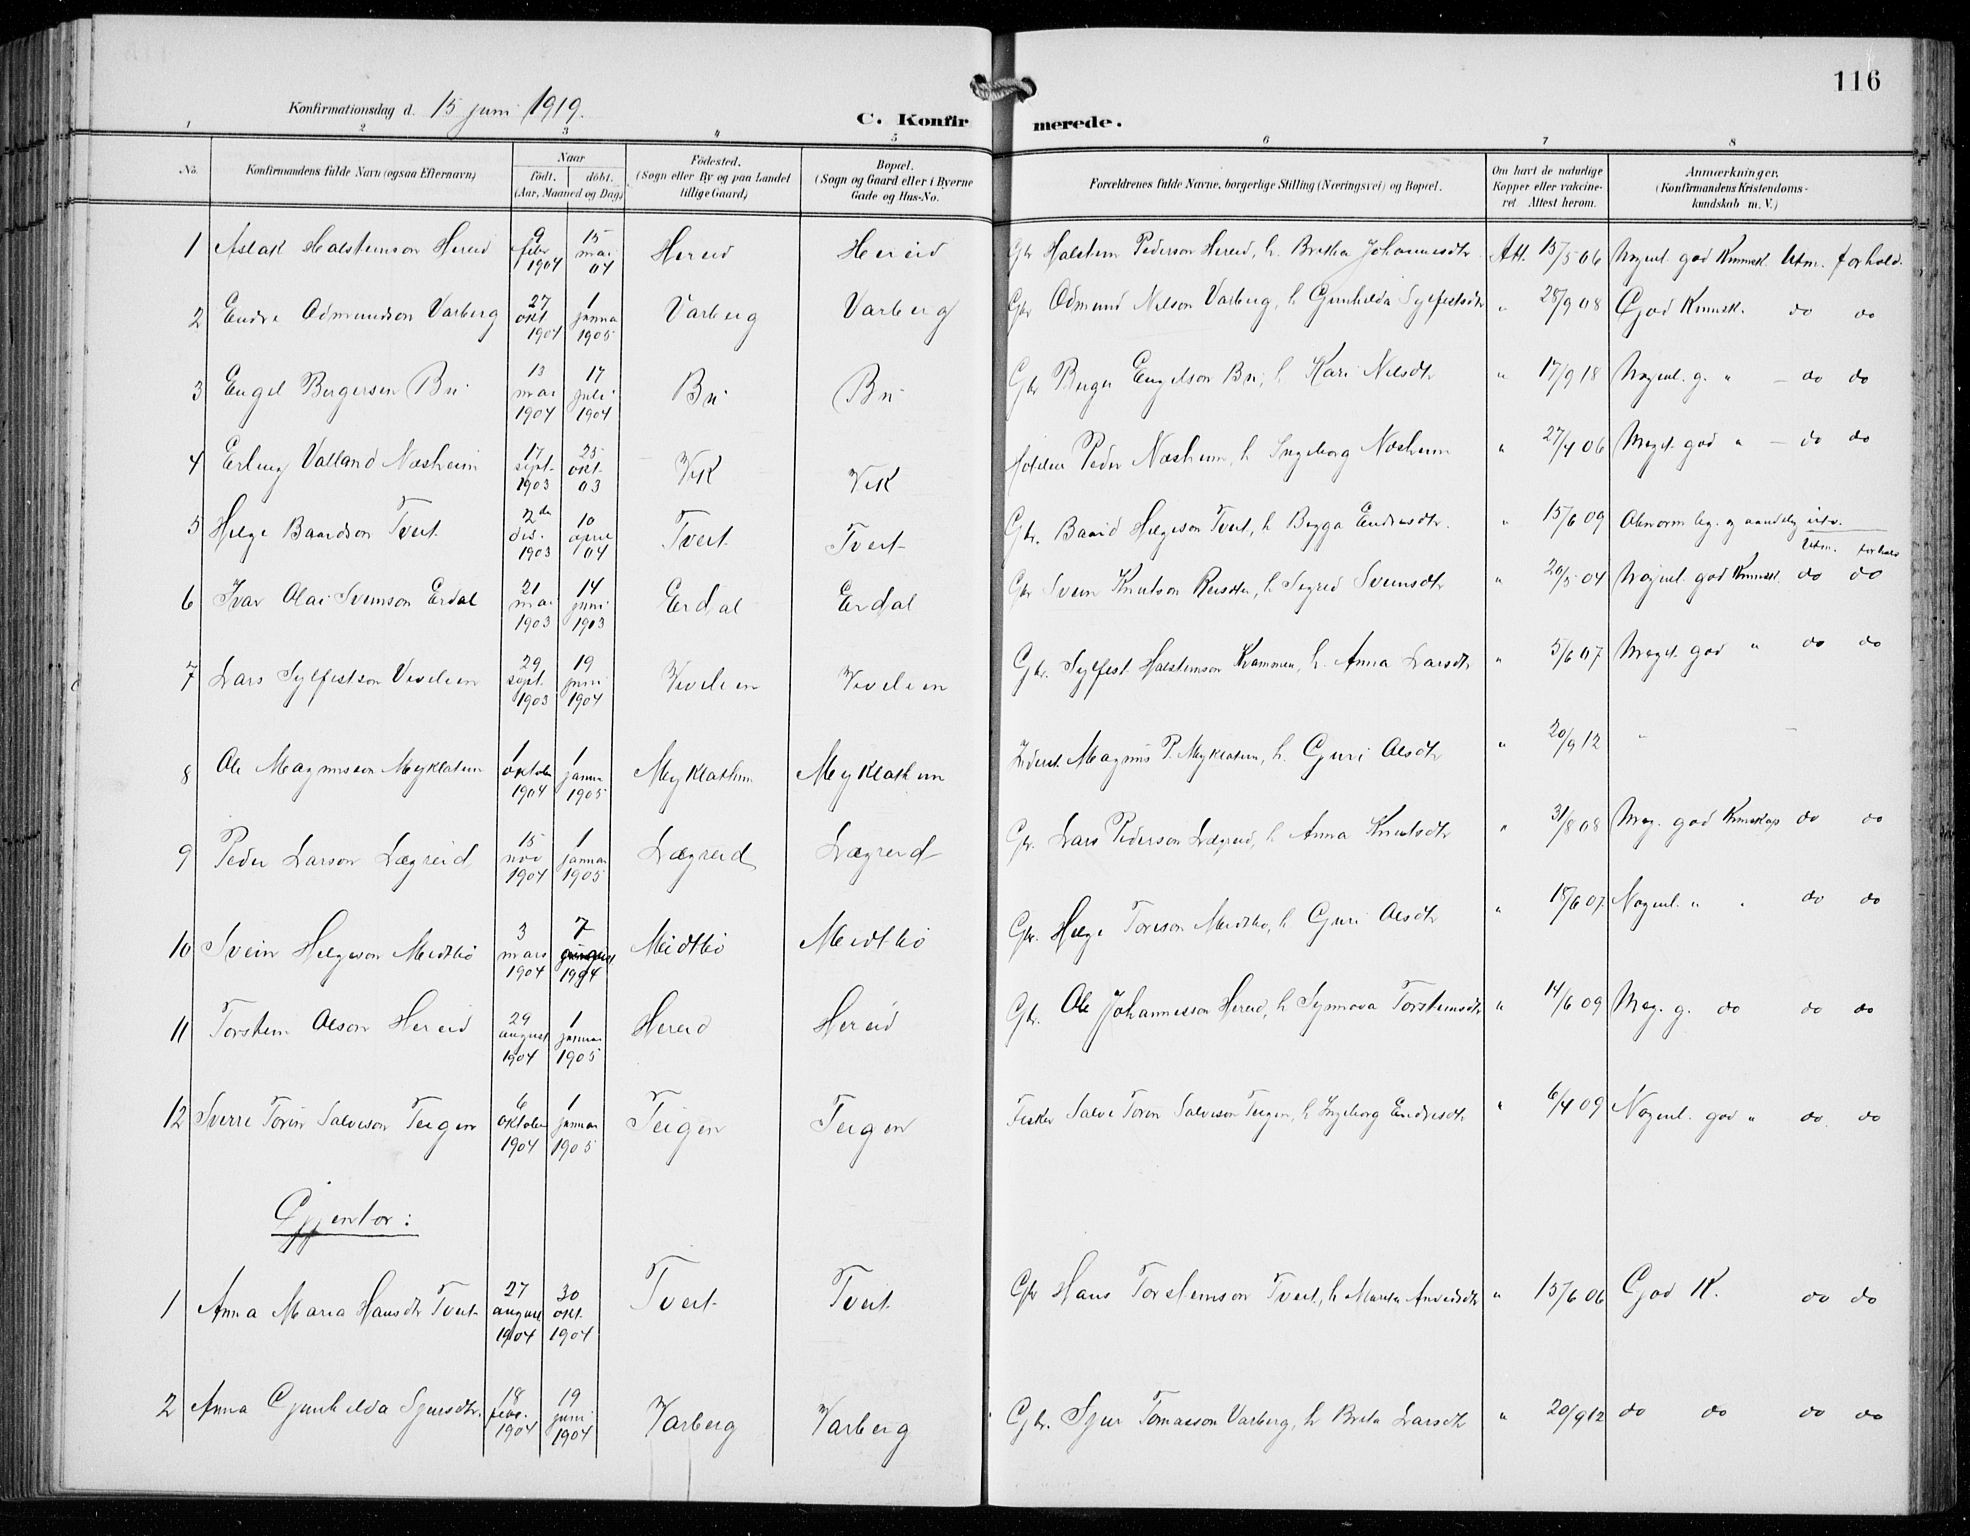 116
Konfirmationsdag d. 15 juni 1919.
C. Konfirmerede.
1 2 3 4 5 6 7 8
No. | Konfirmandens fulde Navn (ogsaa Efternavn) | Naar født. døbt. (Aar, Maaned og Dag) | Fødested. (Sogn eller By og paa Landet tillige Gaard) | Bopæl. (Sogn og Gaard eller i Byerne Gade og Hus-No. | Forældrenes fulde Navne, borgerlige Stilling (Næringsvei) og Bopæl. | Om havt de naturlige Kopper eller vakcineret Attest herom. | Anmærkninger. (Konfirmandens Kristendomskundskab m. V.)
1 Aslak Halsteinson Hereid | 9 febr 1904 | 15 mai 04 | Hereid | Hereid | Gbr Halstein Pederson Hereid, h. Britha Johannesdtr | Att. 15/5 06 | Nogenl. god Kunnsk. Utm. forhold.
2 Endre Odmundson Varberg | 27 okt 1904 | 1 janua 1905 | Varberg | Varberg | Gbr Odmund Nilson Varberg, h Gunhilda Sylfestsdtr | " 28/9 08 | God Kunnsk. do do
3 Engel Bergersen Bu | 13 mai 1904 | 17 juli 1904 | Bu | Bu | Gbr Berger Engelson Bu, h Kari Nilsdtr | " 17/9 18 | Nogenl. g. " — do do
4 Erling Valland Næsheim | 17 sept. 1903 | 25 okt. 03 | Vik | Vik | Peder Næsheim, h Ingeborg Næsheim | " 27/4 06 | Meget god " — do do
5 Helge Baardson Tveit | 2den des. 1903 | 10 april 04 | Tveit | Tveit | Gbr. Baard Helgeson Tveit, h Bryga Endresdtr. | " 15/6 09 | Abnorm leg. og aandelig utv. Utm. forhold
6 Ivar Olai Sveinson Erdal | 21 mai 1903 | 14 juni 1903 | Erdal | Erdal | Gbr Svein Knutson, h Sigrid Sveinsdtr | " 20/5 04 | Nogenl. god Kunnsk. do do
7 Lars Sylfestson Veivlein | 29 sept. 1903 | 19 juni 1904 | Veivlein | Veivlein | Gbr. Sylfest Halsteinson Kvammen, h. Anna Larsdtr | " 5/6 07 | Meget god " do do
8 Ole Magnusson Myklatun | 1 oktober 1904 | 1 janua 1905 | Myklatun | Myklatun | Magnus P. Myklatun, h. Guri Olsdtr | " 20/9 12 | " —
9 Peder Larson Lægreid | 15 nov 1904 | 1 januar 1905 | Lægreid | Lægreid | Gbr. Lars Pederson Lægreid, h Anna Knutsdtr | " 31/8 08 | Meg. god Kunnskap do do
10 Svein Helgeson Meidtbø | 3 mars 1904 | 7 1904 | Meidtbø | Meidtbø | Gbr. Helge Toreson Meidtbø, h Guri Olsdtr | " 18/6 07. | Nogenl. " " do do
11 Torstein Olson Hereid | 29 august 1904 | 1 januar 1905 | Hereid | Hereid | Gbr. Ole Johannesson Hereid, h Synnova Torsteinsdtr | " 14/6 09 | Meg. g. do do do
12 Sverre Torin Salveson Teigen | 6 oktober 1904 | 1 januar 1905 | Teigen | Teigen | Fisker Salve Torin Salveson Teigen, h Ingeborg Endresdtr | " 6/4 09 | Nogenl. god " do. do
Gjentor:
1 Anna Maria Hansdtr Tveit | 27 august 1904 | 30 okt. 1904 | Tveit | Tveit | Gbr Hans Torsteinson Tveit, h Marita | " 15/6 06 | God K. do do
2 Anna Gunhilda Sjursdtr. | 18 febr. 1904 | 19 juni 1904 | Varberg | Varberg | Gbr. Sjur Tomasson Varberg, h Brita Larsdtr | " 20/9 12 | do do do do